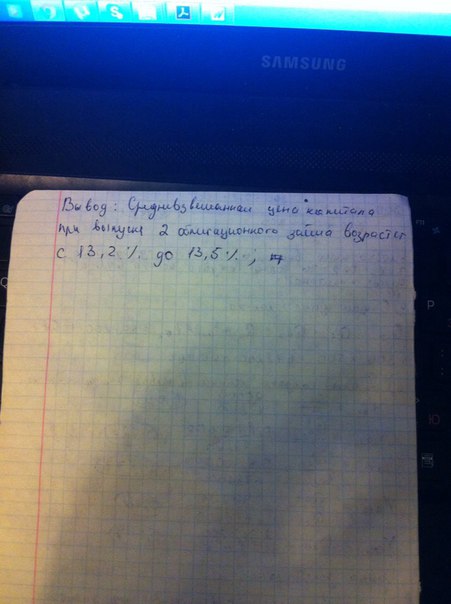 SAMSUNG
Вывод: Средневзвешанная цена капитала
при выпуске 2 облигационного займа возрастет
с 13,2% до 13,5%;
P
Ю